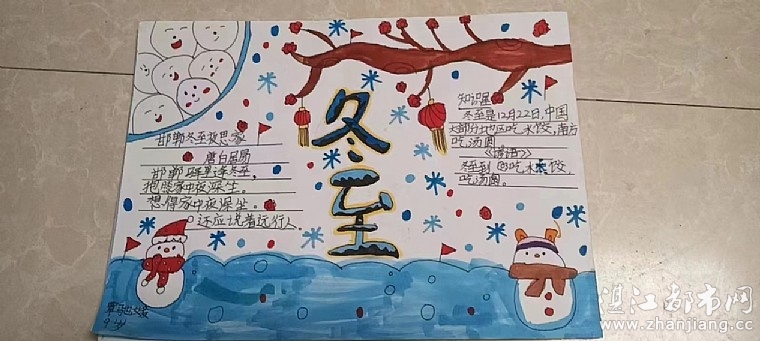 邯郸冬至夜思家
唐白居易
邯郸驿里逢冬至,
抱膝
家中夜深坐。
还应说着远行人。
冬至
知识屋
冬至是12月22日,中国
大部分地区吃水饺,南方
吃汤圆
《谚语》
冬至到 吃水饺,
吃汤圆。
9岁
湛江都市网
www.zhanjiang.cc